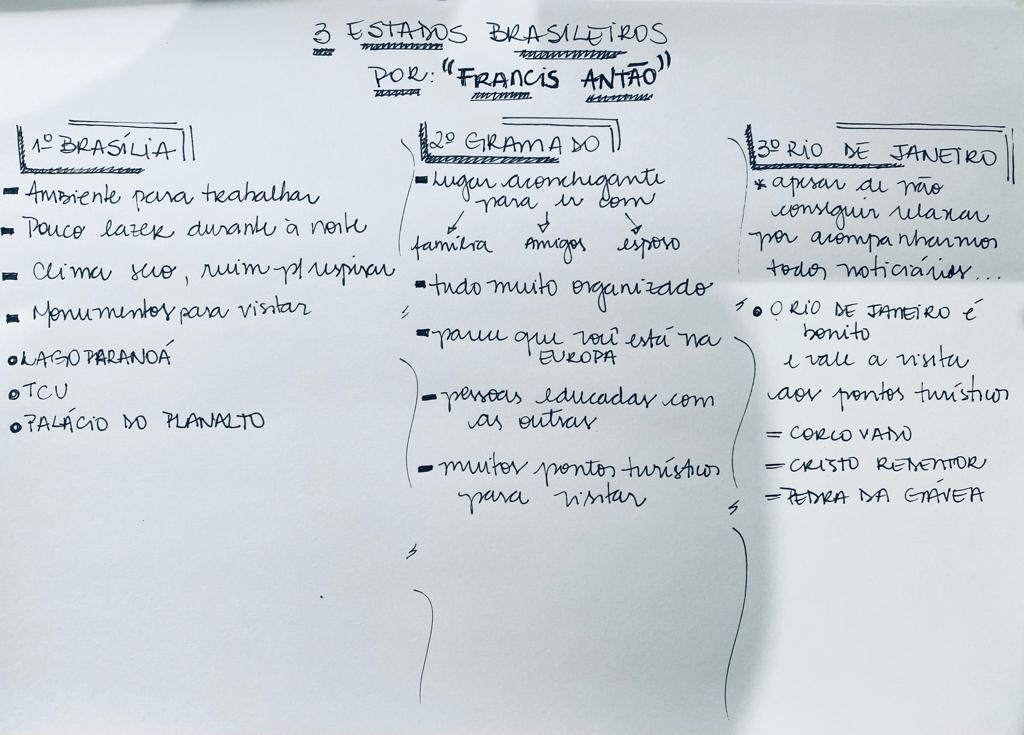 3 ESTADOS BRASILEIROS
POR: "FRANCIS ANTÃO"
1º BRASÍLIA
- Ambiente para trabalhar
- Pouco lazer durante à noite
- Clima seco, ruim p/ respirar
- Monumentos para visitar
• LAGO PARANOÁ
• TCU
• PALÁCIO DO PLANALTO
2º GRAMADO
- Lugar aconchegante
para ir com
família amigos esposo
- tudo muito organizado
- parece que você está na
EUROPA
- pessoas educadas com
as outras
- muitos pontos turísticos
para visitar
3º RIO DE JANEIRO
* apesar de não
conseguir relaxar
por acompanharmos
todos noticiários...
• O RIO DE JANEIRO é
bonito
e vale a visita
aos pontos turísticos
= CORCOVADO
= CRISTO REDENTOR
= PEDRA DA GÁVEA